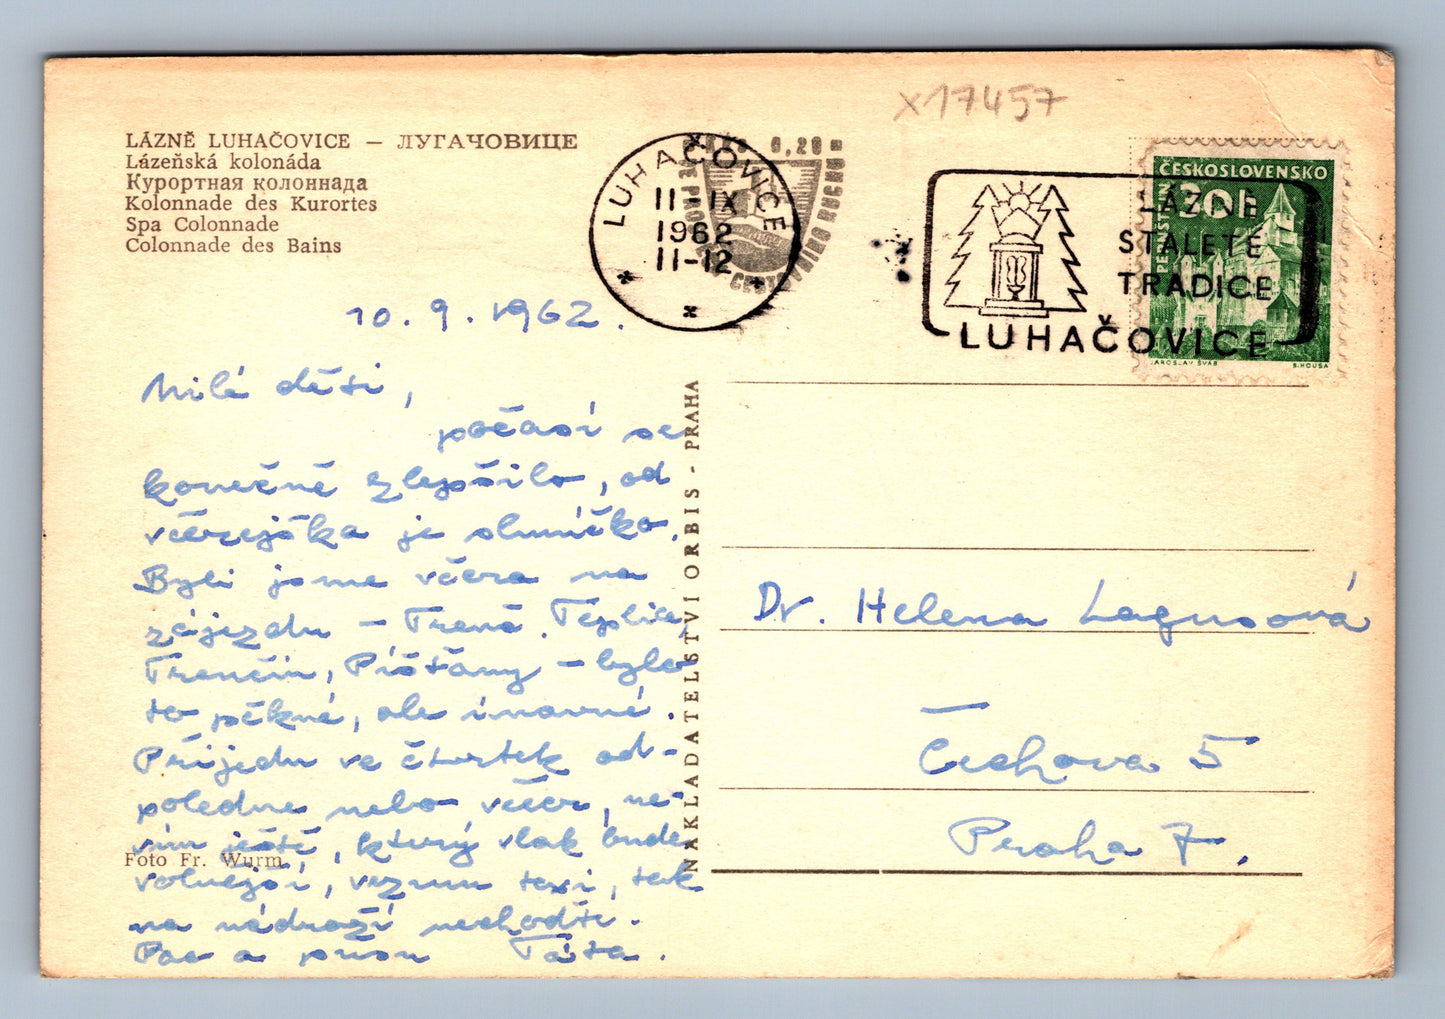 x17457
LÁZNĚ LUHAČOVICE — ЛУГАЧОВИЦЕ
Lázeňská kolonáda
Курортная колоннада
Kolonnade des Kurortes
Spa Colonnade
Colonnade des Bains
LUHAČOVICE
11-IX
1962
11-12
0,20
CESTOVNÍHO RUCHU
ČESKOSLOVENSKO
30h
PERNŠTEJN
JAROSLAV ŠVÁB
B. HOUSA
LÁZNĚ
STALETÉ
TRADICE
LUHAČOVICE
10. 9. 1962.
Milé děti,
počasí se
konečně zlepšilo, od
včerejška je sluníčko.
Byli jsme včera na
zájezdu – Trenč. Teplice,
Trenčín, Píšťany – bylo
to pěkné, ale únavné.
Přijedu ve čtvrtek od-
poledne nebo večer, ne-
vím ještě, který vlak bude
volnější, vezmu taxi, tak
na nádraží nechoďte.
Pac a pusu Táta.
Foto Fr. Wurm
NAKLADATELSTVI ORBIS - PRAHA
Dr. Helena Lagusová
Čechova 5
Praha 7.